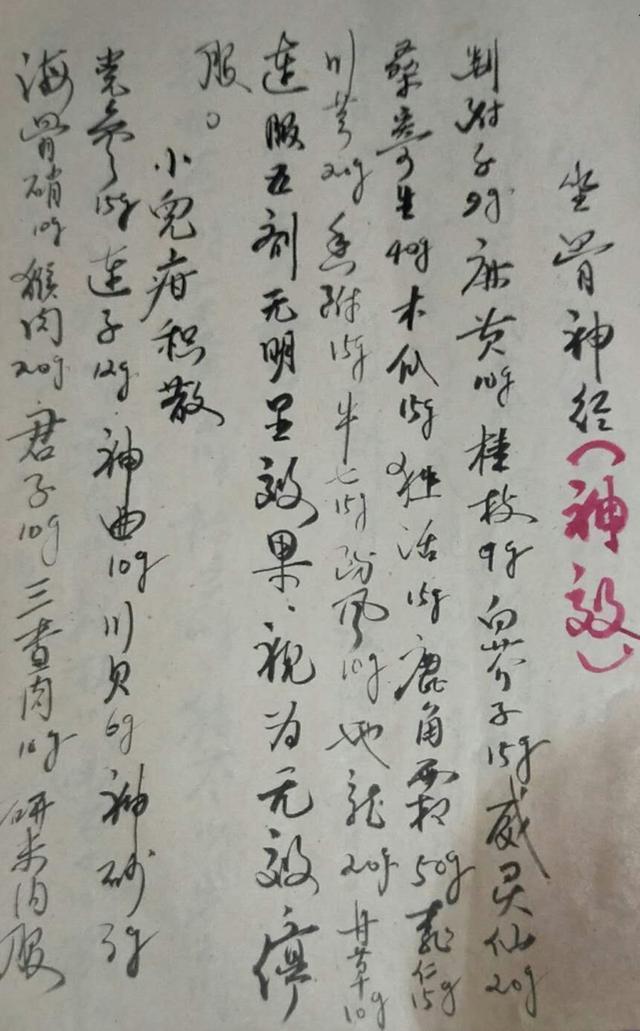 坐骨神经(神效)
制附子9g麻黄10g桂枝9g白芥子15g威灵仙20g
桑寄生40g木瓜15g独活15g鹿角霜50g桃仁15g
川芎20g香附15g牛七15g防风10g地龙20g甘草10g
连服五剂无明显效果、视为无效停
服。
小儿疳积散
党参15g连子12g神曲10g川贝6g神砂3g
海骨硝10g猴肉20g君子10g三查肉10g研末内服